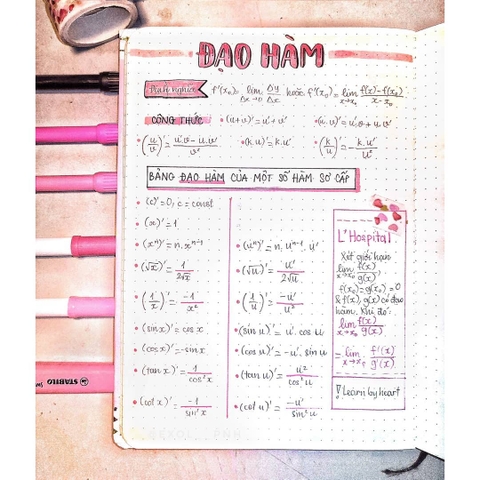 ĐẠO HÀM
Định nghĩa f'(x₀) = lim Δx→0 Δy/Δx hoặc f'(x₀) = lim x→x₀ (f(x) - f(x₀))/(x - x₀)
CÔNG THỨC • (u+v)' = u' + v' • (u.v)' = u'.v + u.v'
• (u/v)' = (u'.v - u.v')/v² • (k.u)' = k.u' • (k/u)' = -k.u'/u²
BẢNG ĐẠO HÀM CỦA MỘT SỐ HÀM SƠ CẤP
• (c)' = 0, c = const
• (x)' = 1
• (xⁿ)' = n.xⁿ⁻¹ • (uⁿ)' = n.uⁿ⁻¹.u'
• (√x)' = 1/(2√x) • (√u)' = u'/(2√u)
• (1/x)' = -1/x² • (1/u)' = -u'/u²
• (sin x)' = cos x • (sin u)' = u'.cos u
• (cos x)' = -sin x • (cos u)' = -u'.sin u
• (tan x)' = 1/cos²x • (tan u)' = u²/cos²u
• (cot x)' = -1/sin²x • (cot u)' = -u'/sin²u
L'Hospital
Xét giới hạn
lim x→x₀ f(x)/g(x),
f(x₀) = g(x₀) = 0
& f(x), g(x) có đạo
hàm. Khi đó:
lim x→x₀ f(x)/g(x)
= lim x→x₀ f'(x)/g'(x)
! Learn by heart
STABILO